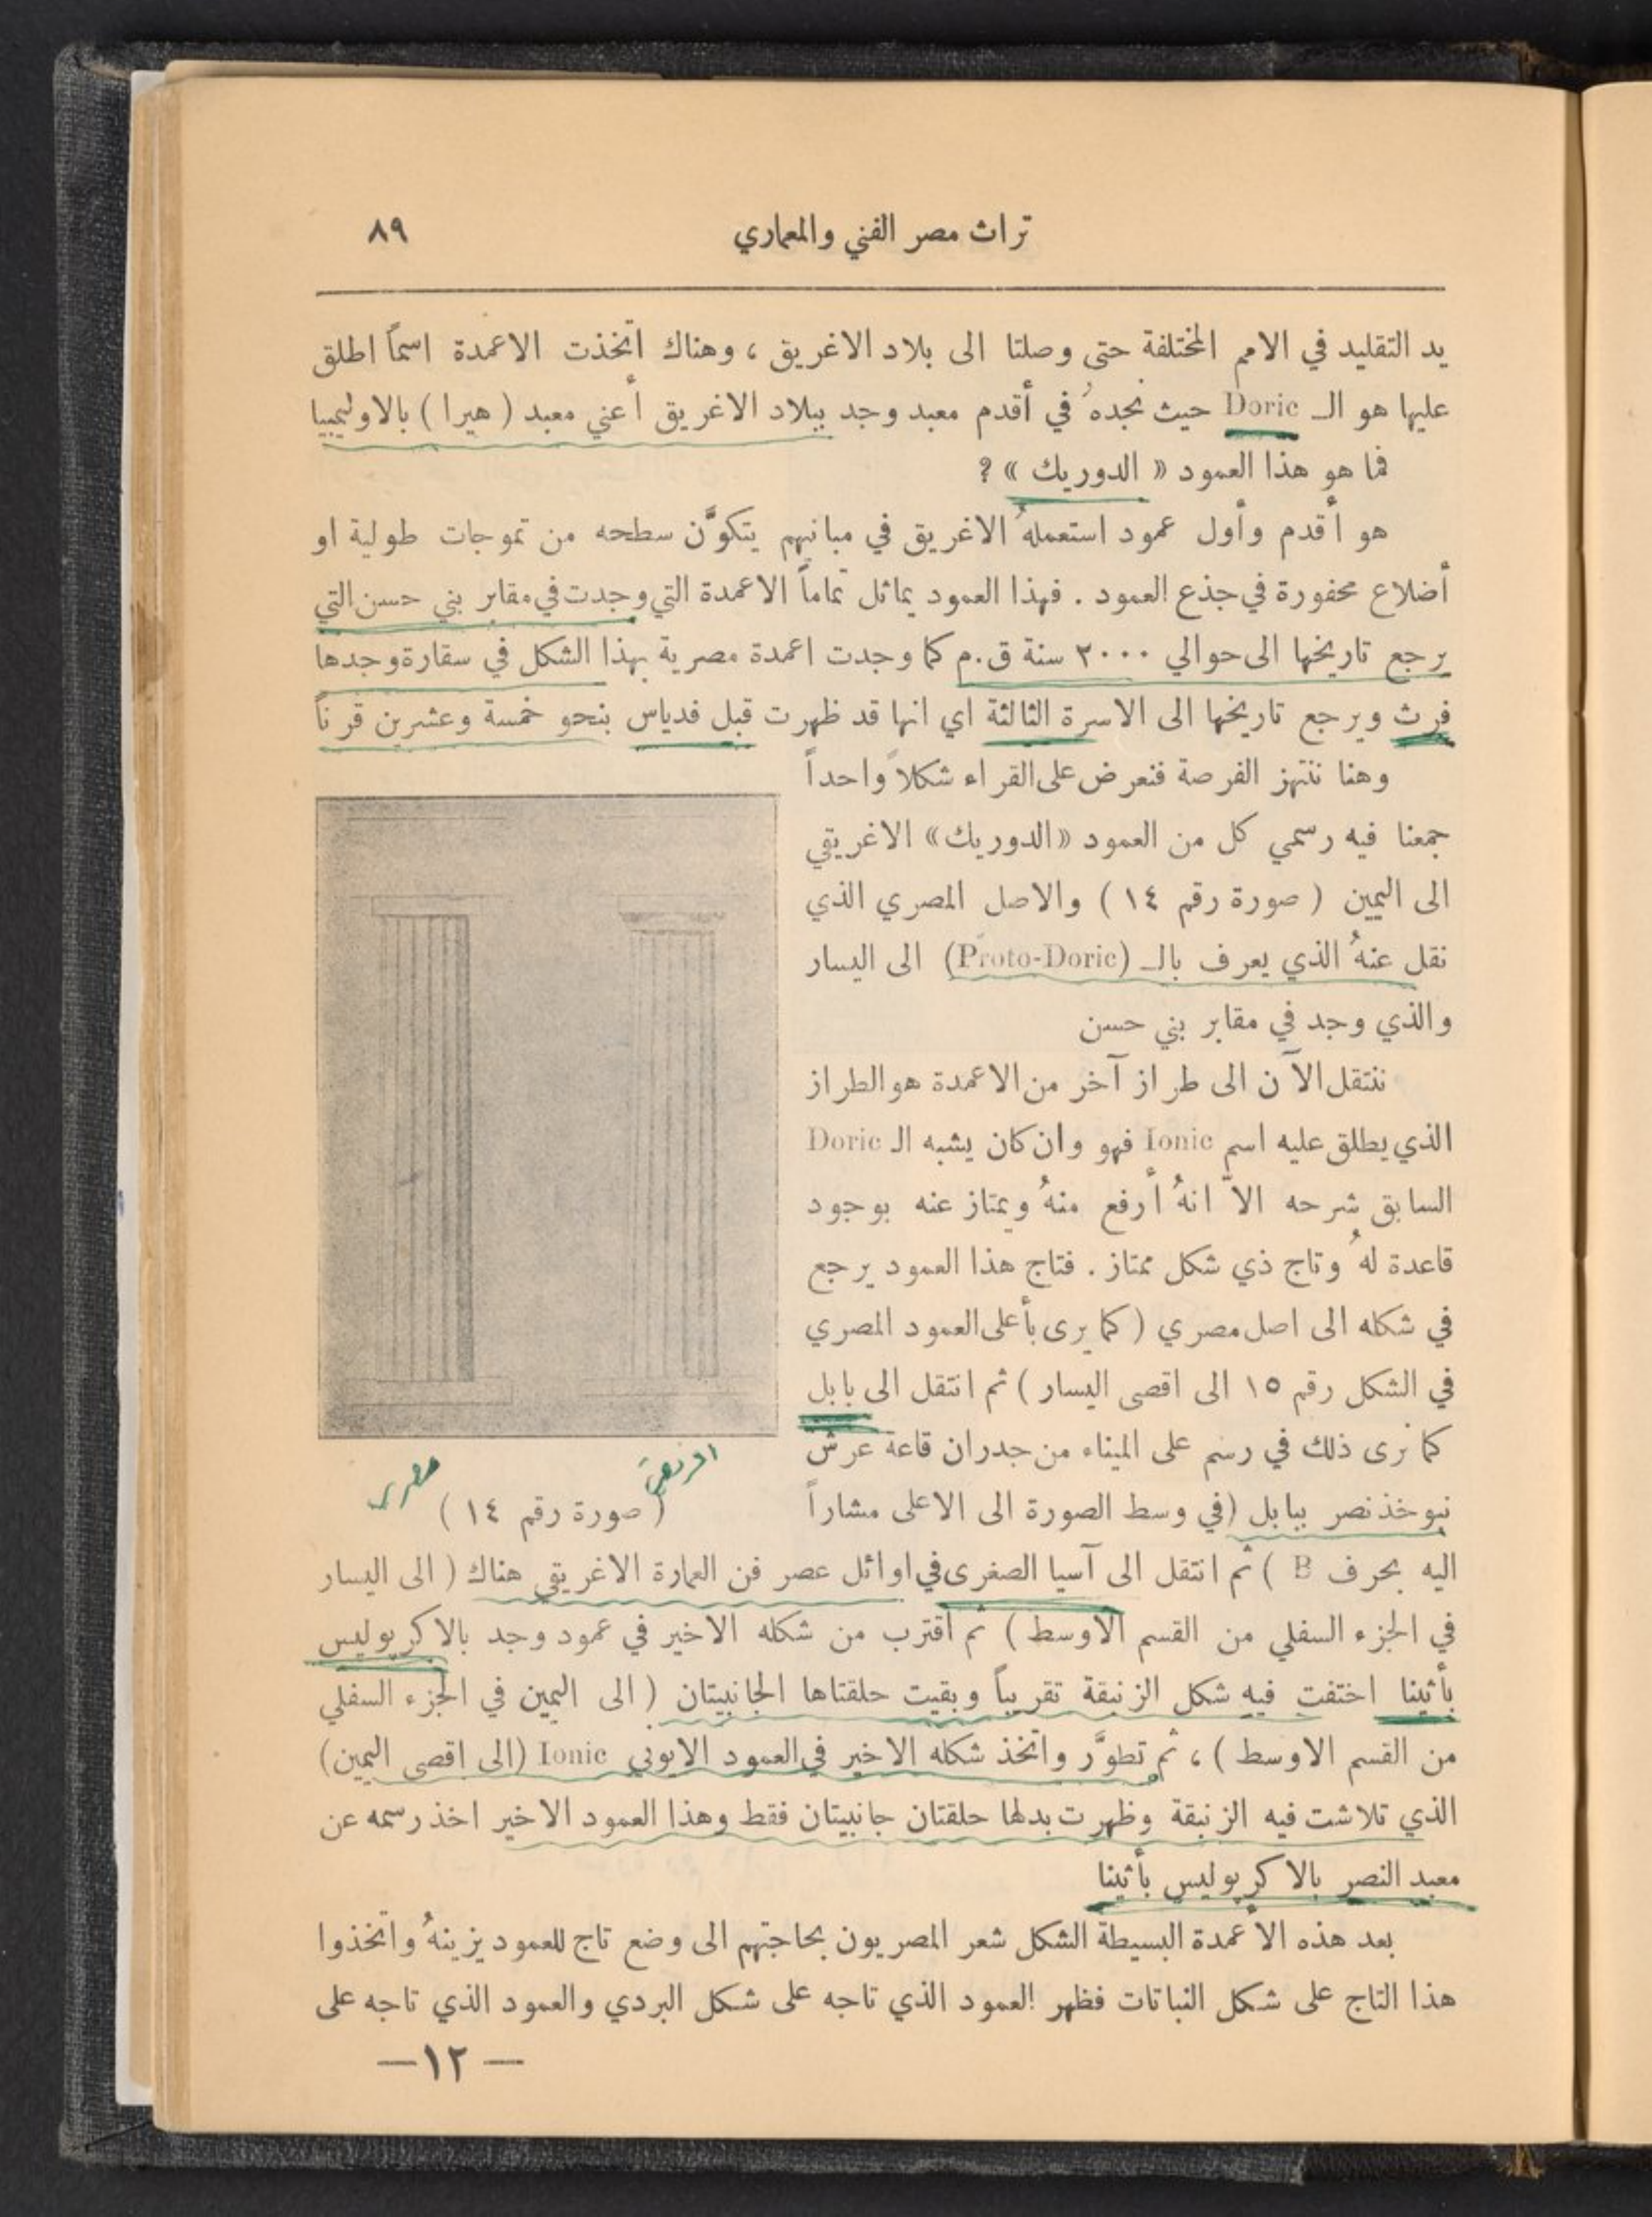 تراث مصر الفني والمعماري ٨٩
يد التقليد في الامم المختلفة حتى وصلتا الى بلاد الاغريق ، وهناك اتخذت الاعمدة اسماً اطلق
عليها هو الـ Doric حيث نجدهُ في أقدم معبد وجد ببلاد الاغريق أعني معبد ( هيرا ) بالاوليمبيا
فما هو هذا العمود « الدوريك » ؟
هو أقدم وأول عمود استعملهُ الاغريق في مبانيهم يتكوَّن سطحه من تموجات طولية او
أضلاع محفورة في جذع العمود . فهذا العمود يماثل تماماً الاعمدة التي وجدت في مقابر بني حسن التي
يرجع تاريخها الى حوالي ٢٠٠٠ سنة ق.م كما وجدت اعمدة مصرية بهذا الشكل في سقارة وجدها
فرث ويرجع تاريخها الى الاسرة الثالثة اي انها قد ظهرت قبل فدياس بنحو خمسة وعشرين قرناً
وهنا ننتهز الفرصة فنعرض على القراء شكلاً واحداً
جمعنا فيه رسمي كل من العمود «الدوريك» الاغريقي
الى اليمين ( صورة رقم ١٤ ) والاصل المصري الذي
نقل عنهُ الذي يعرف بالـ (Proto-Doric) الى اليسار
والذي وجد في مقابر بني حسن
ننتقل الآن الى طراز آخر من الاعمدة هو الطراز
الذي يطلق عليه اسم Ionic فهو وان كان يشبه الـ Doric
السابق شرحه الاّ انهُ أرفع منهُ ويمتاز عنه بوجود
قاعدة لهُ وتاج ذي شكل ممتاز . فتاج هذا العمود يرجع
في شكله الى اصل مصري ( كما يرى بأعلى العمود المصري
في الشكل رقم ١٥ الى اقصى اليسار ) ثم انتقل الى بابل
كما نرى ذلك في رسم على الميناء من جدران قاعة عرش
نبوخذنصر ببابل (في وسط الصورة الى الاعلى مشاراً
مصرى
( صورة رقم ١٤ )
اليه بحرف B ) ثم انتقل الى آسيا الصغرى في اوائل عصر فن العمارة الاغريقي هناك ( الى اليسار
في الجزء السفلي من القسم الاوسط ) ثم اقترب من شكله الاخير في عمود وجد بالاكربوليس
بأثينا اختفت فيه شكل الزنبقة تقريباً وبقيت حلقتاها الجانبيتان ( الى اليمين في الجزء السفلي
من القسم الاوسط ) ، ثم تطوَّر واتخذ شكله الاخير في العمود الايوني Ionic (الى اقصى اليمين)
الذي تلاشت فيه الزنبقة وظهرت بدلها حلقتان جانبيتان فقط وهذا العمود الاخير اخذ رسمه عن
معبد النصر بالاكربوليس بأثينا
بعد هذه الأعمدة البسيطة الشكل شعر المصريون بحاجتهم الى وضع تاج للعمود يزينهُ واتخذوا
هذا التاج على شكل النباتات فظهر العمود الذي تاجه على شكل البردي والعمود الذي تاجه على
— ١٢ —